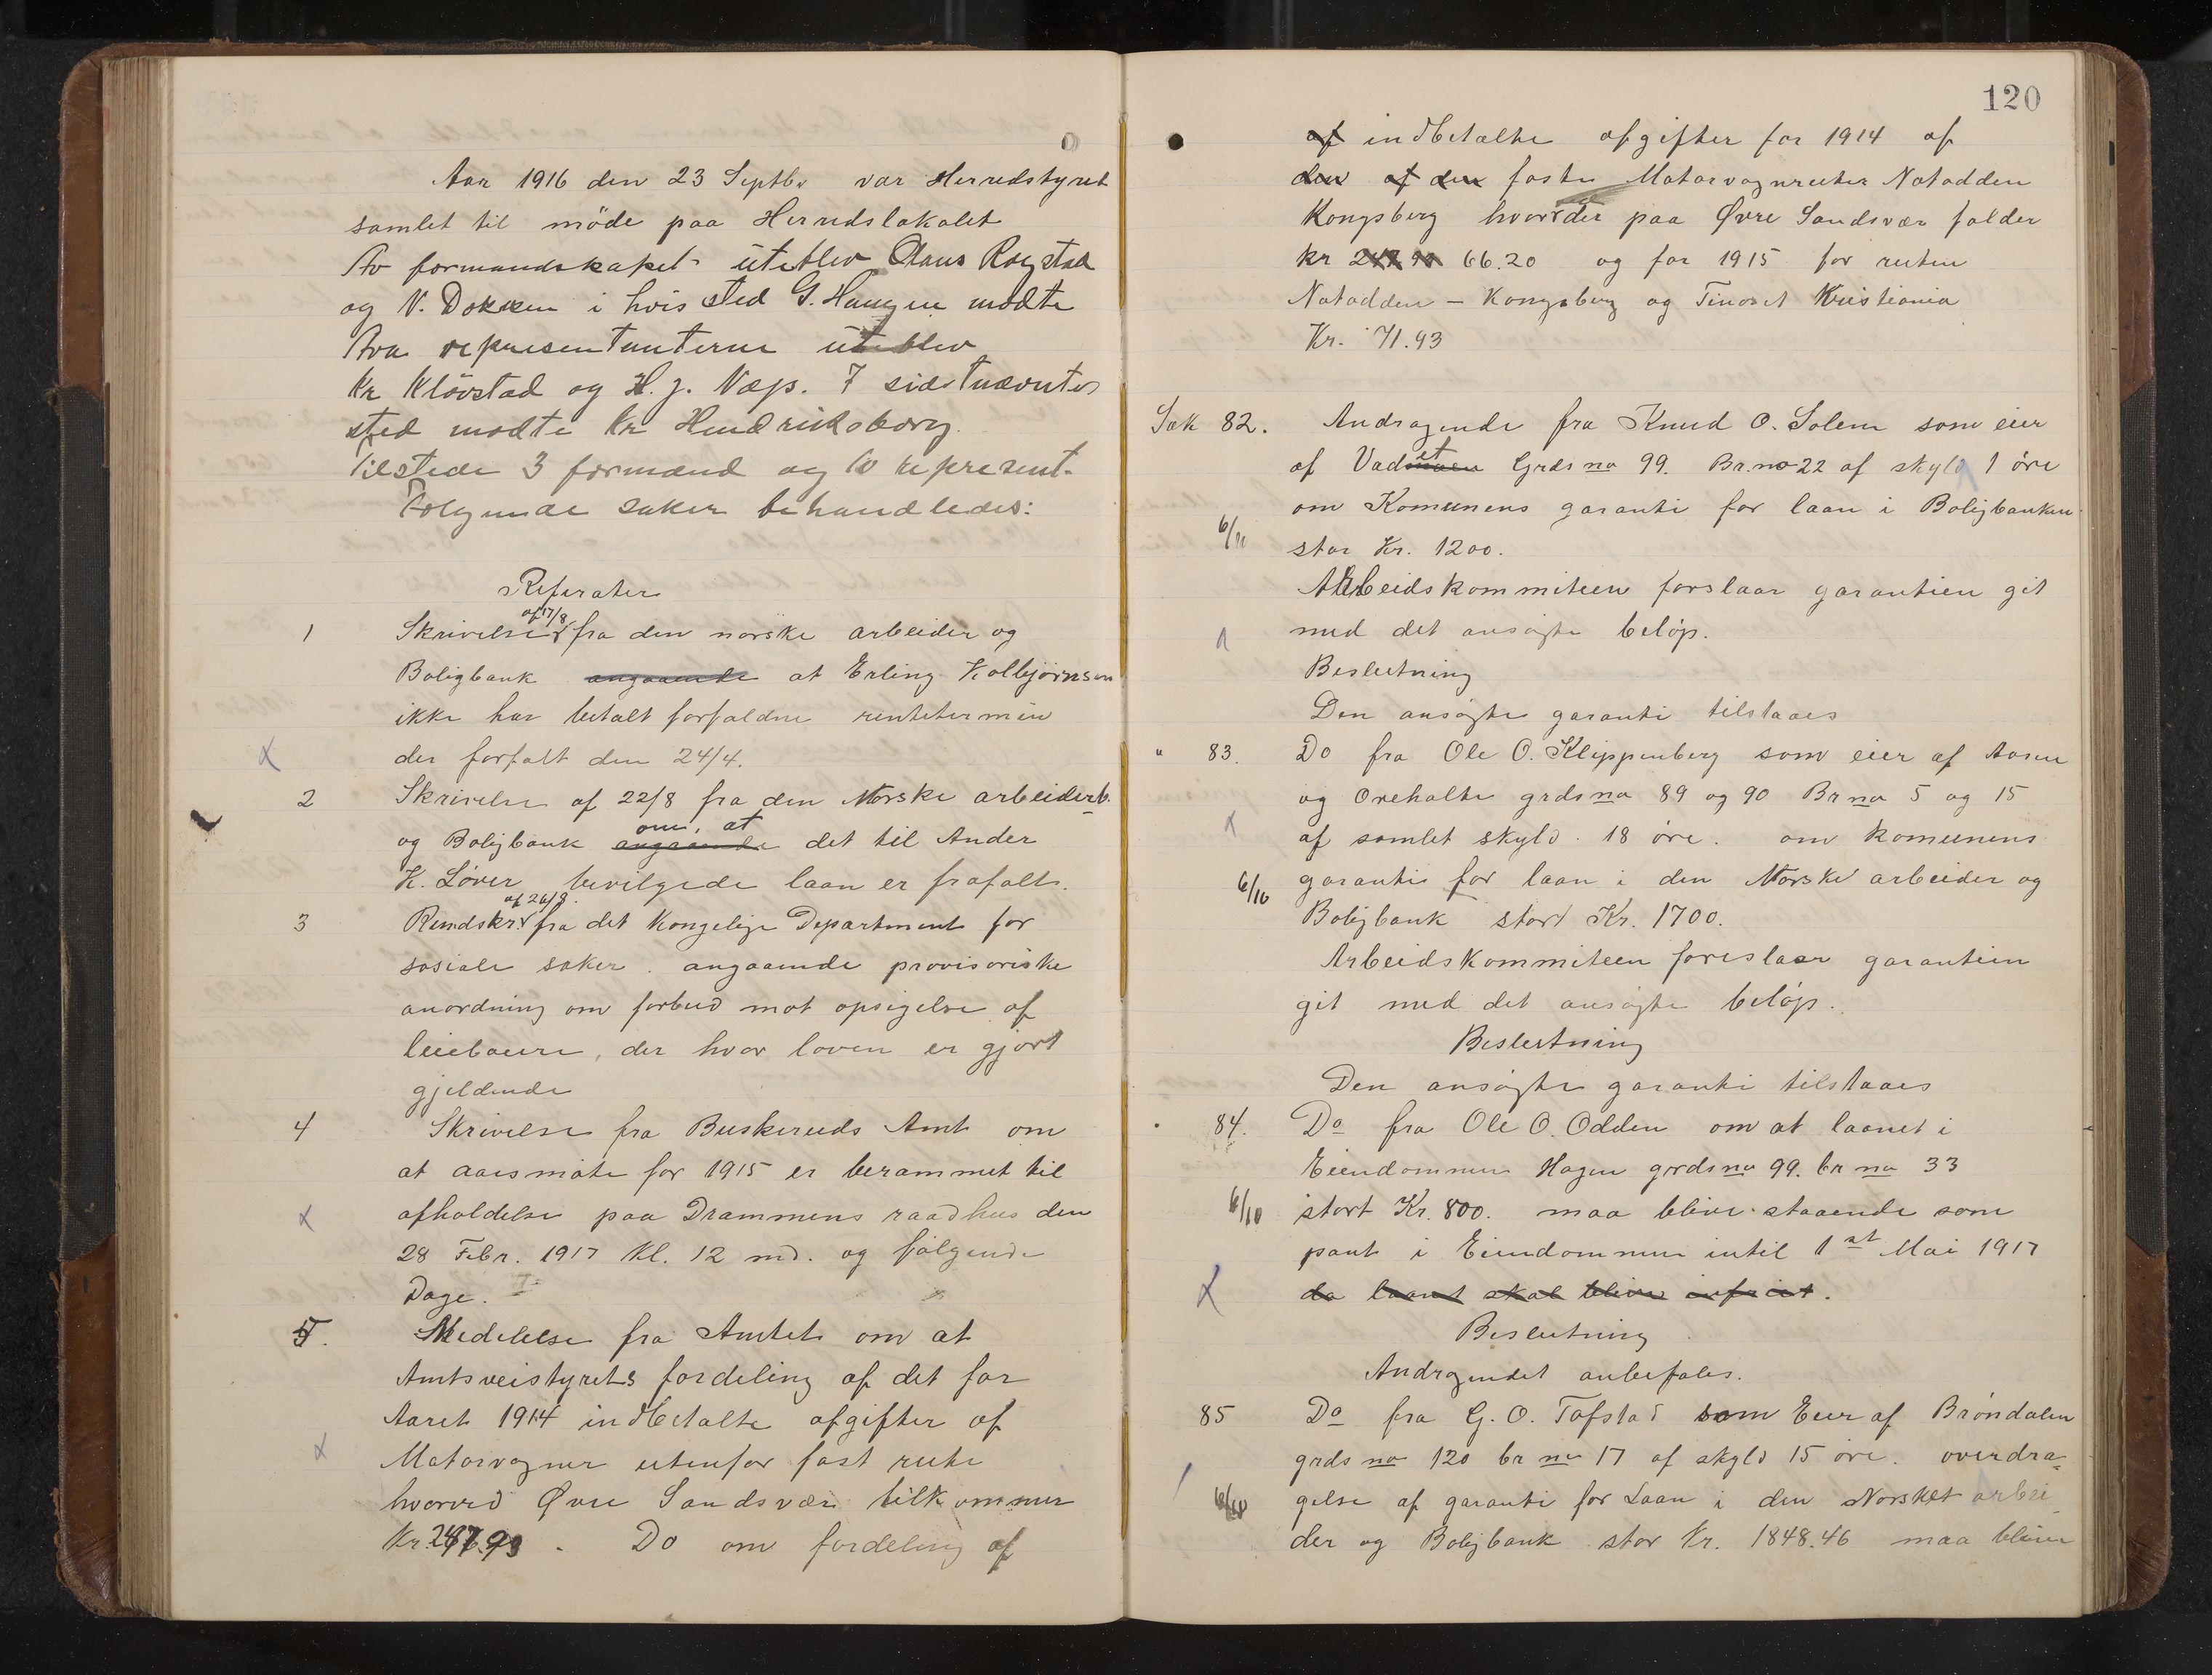 Aar 1916 den 23 Septbr var Herredstyret
samlet til möde paa Herredslokalet
Av formandskapet uteblev Claus Rogstad
og N. Dokken i hvis sted G. Haugen mødte
Ava representanterne uteblev
Kr Klövstad og H. J. Næps. I sidstnævntes
sted mødte Kr Hendriksborg.
Tilstede 3 formænd og 10 represent.
Følgende saker behandledes:
Referater
1 Skrivelse af 17/8 fra den norske arbeider og
Boligbank angaaende at Erling Kolbjørnsen
ikke har betalt forfaldne rentetermin
der forfalt den 24/4.
2 Skrivelse af 22/8 fra den Norske arbeiderb.
og Boligbank angaaende om, at det til Ander
K. Løver bevilgede laan er frafalt.
3 Rundskr. af 26/8. fra det Kongelige Department for
sosiale saker. angaaende provisoriske
anordning om forbud mot opsigelse af
leieboere, der hvor loven er gjort
gjeldende
4 Skrivelse fra Buskeruds Amt om
at aarsmøte for 1915 er berammet til
afholdelse paa Drammens raadhus den
28 Febr. 1917 Kl. 12 md. og følgende
Dage.
5. Medelelse fra Amtet om at
Amtsveistyrets fordeling af det for
Aaret 1914 indbetalte afgifter af
Motorvogner utenfor fast rute
hvorved Øvre Sandsvær tilkommer
Kr. 247.93. Do om fordeling af
120
af indbetalte afgifter for 1914 af
den af den faste Motorvognruter Notodden
Kongsberg hvorder paa Øvre Sandsvær falder
kr 247 90 66.20 og for 1915 for ruten
Notodden – Kongsberg og Tinoset Kristiania
Kr. 71.93
Sak 82. Andragende fra Knud O. Solem som eier
af Vadet Grds no 99. Br. no 22 af skyld 1 öre
om Komunens garanti for laan i Boligbanken
6/10 stor Kr. 1200.
Arbeidskommiteen forslaar garantien git
med det ansøgte beløp.
Beslutning
Den ansøgte garanti tilstaaes
" 83. Do fra Ole O. Klippenberg som eier af Aasen
og Oreholte grds no 89 og 90 Br no 5 og 15
af samlet skyld. 18 öre. om komunens
6/10 garanti for laan i den Norske arbeider og
Boligbank stort Kr. 1700.
Arbeidskommiteen foreslaar garantien
git med det ansøgte beløp.
Beslutning
Den ansøgte garanti tilstaaes
" 84. Do fra Ole O. Odden om at laanet i
Eiendommen Hagen grds no 99. br no 33
6/10 stort Kr. 800. maa blive staaende som
pant i Eiendommen intil 1st Mai 1917
da laanet skal blive infriet.
Beslutning
Andragendet anbefales.
85 Do fra G. O. Tofstad som Eier af Bröndalen
grds no 120 br no 17 af skyld 15 öre. overdra=
6/10 gelse af garanti for Laan i den Norsket arbei
der og Boligbank stor Kr. 1848.46 maa blive